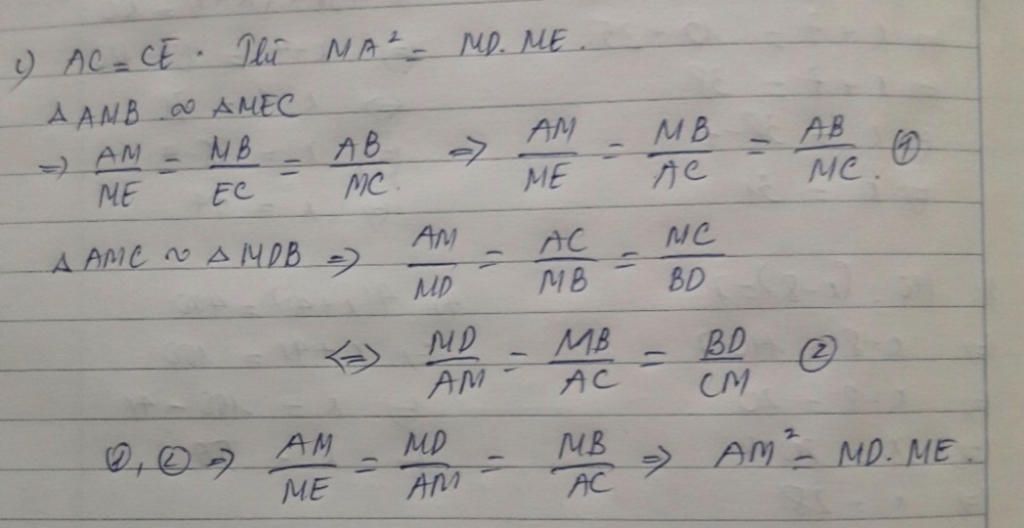 c) AC = CE. Thì MA² = MD. ME.
Δ AMB ∽ Δ MEC
=> AM/ME = MB/EC = AB/MC. => AM/ME = MB/AC = AB/MC. ①
Δ AMC ∽ Δ MDB => AM/MD = AC/MB = MC/BD
<=> MD/AM = MB/AC = BD/CM ②
①, ② => AM/ME = MD/AM = MB/AC => AM² = MD. ME.